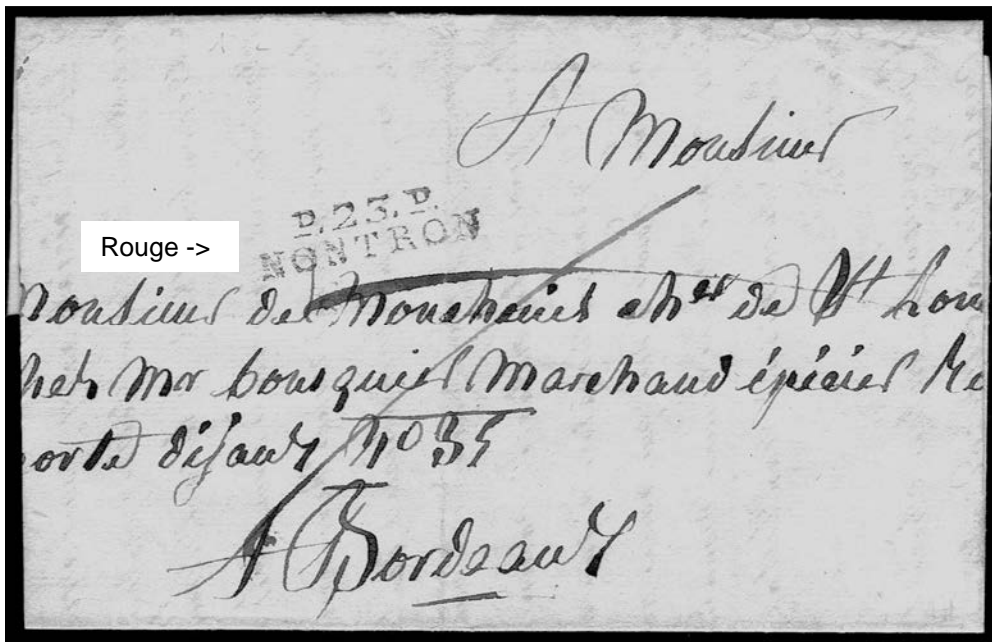 A Monsieur
P.23.P.
NONTRON
Rouge ->
Monsieur de cher de St Lou
chez Mr bousquier Marchand épicier Re
porte dijaux No 35
A Bordeaux